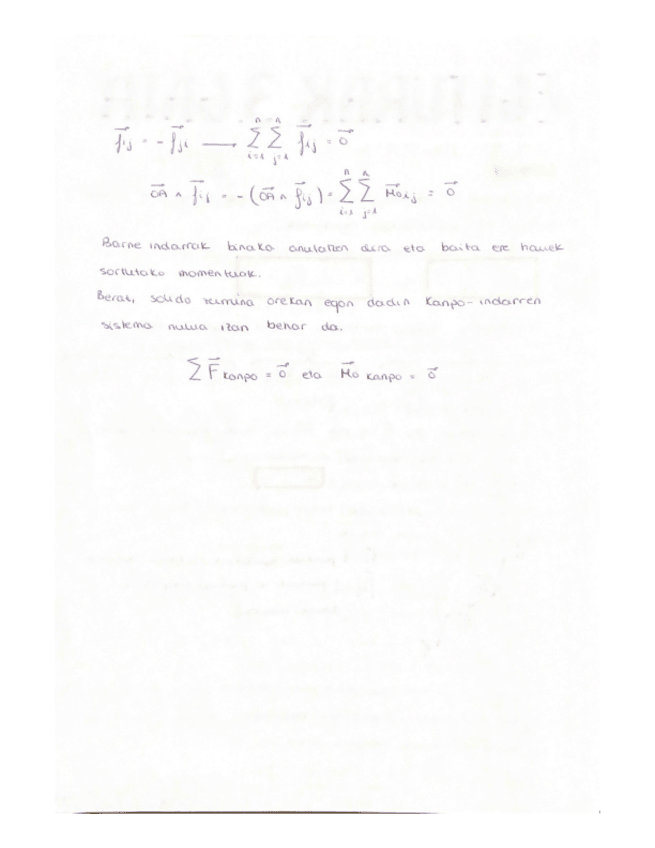 f⃗ij = - f⃗ji —— ∑(i=1→n) ∑(j=1→n) f⃗ij = 0⃗
OA⃗ ∧ f⃗ij = -(OA⃗ ∧ f⃗ij) = ∑(i=1→n) ∑(j=1→n) M⃗oij = 0⃗
Barne indarrak binaka anulatzen dira eta baita ere hauek
sortutako momentuak.
Beraz, solido zurruna orekan egon dadin kanpo-indarren
sistema nulua izan behar da.
∑ F⃗ kanpo = 0⃗ eta M⃗o kanpo = 0⃗